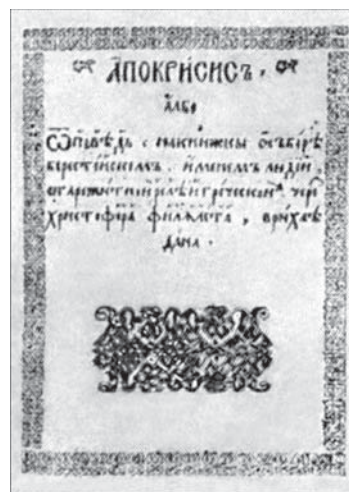 А҆ПОКРИ́СИСЪ ,
А҆лбо
Ѿповѣ́дь , на книжкы ѡ съборѣ
берестейскомъ . и҆менемъ людій
старожитнои релѣи греческои , чере
христофора филялета , врихлѣ
дана .